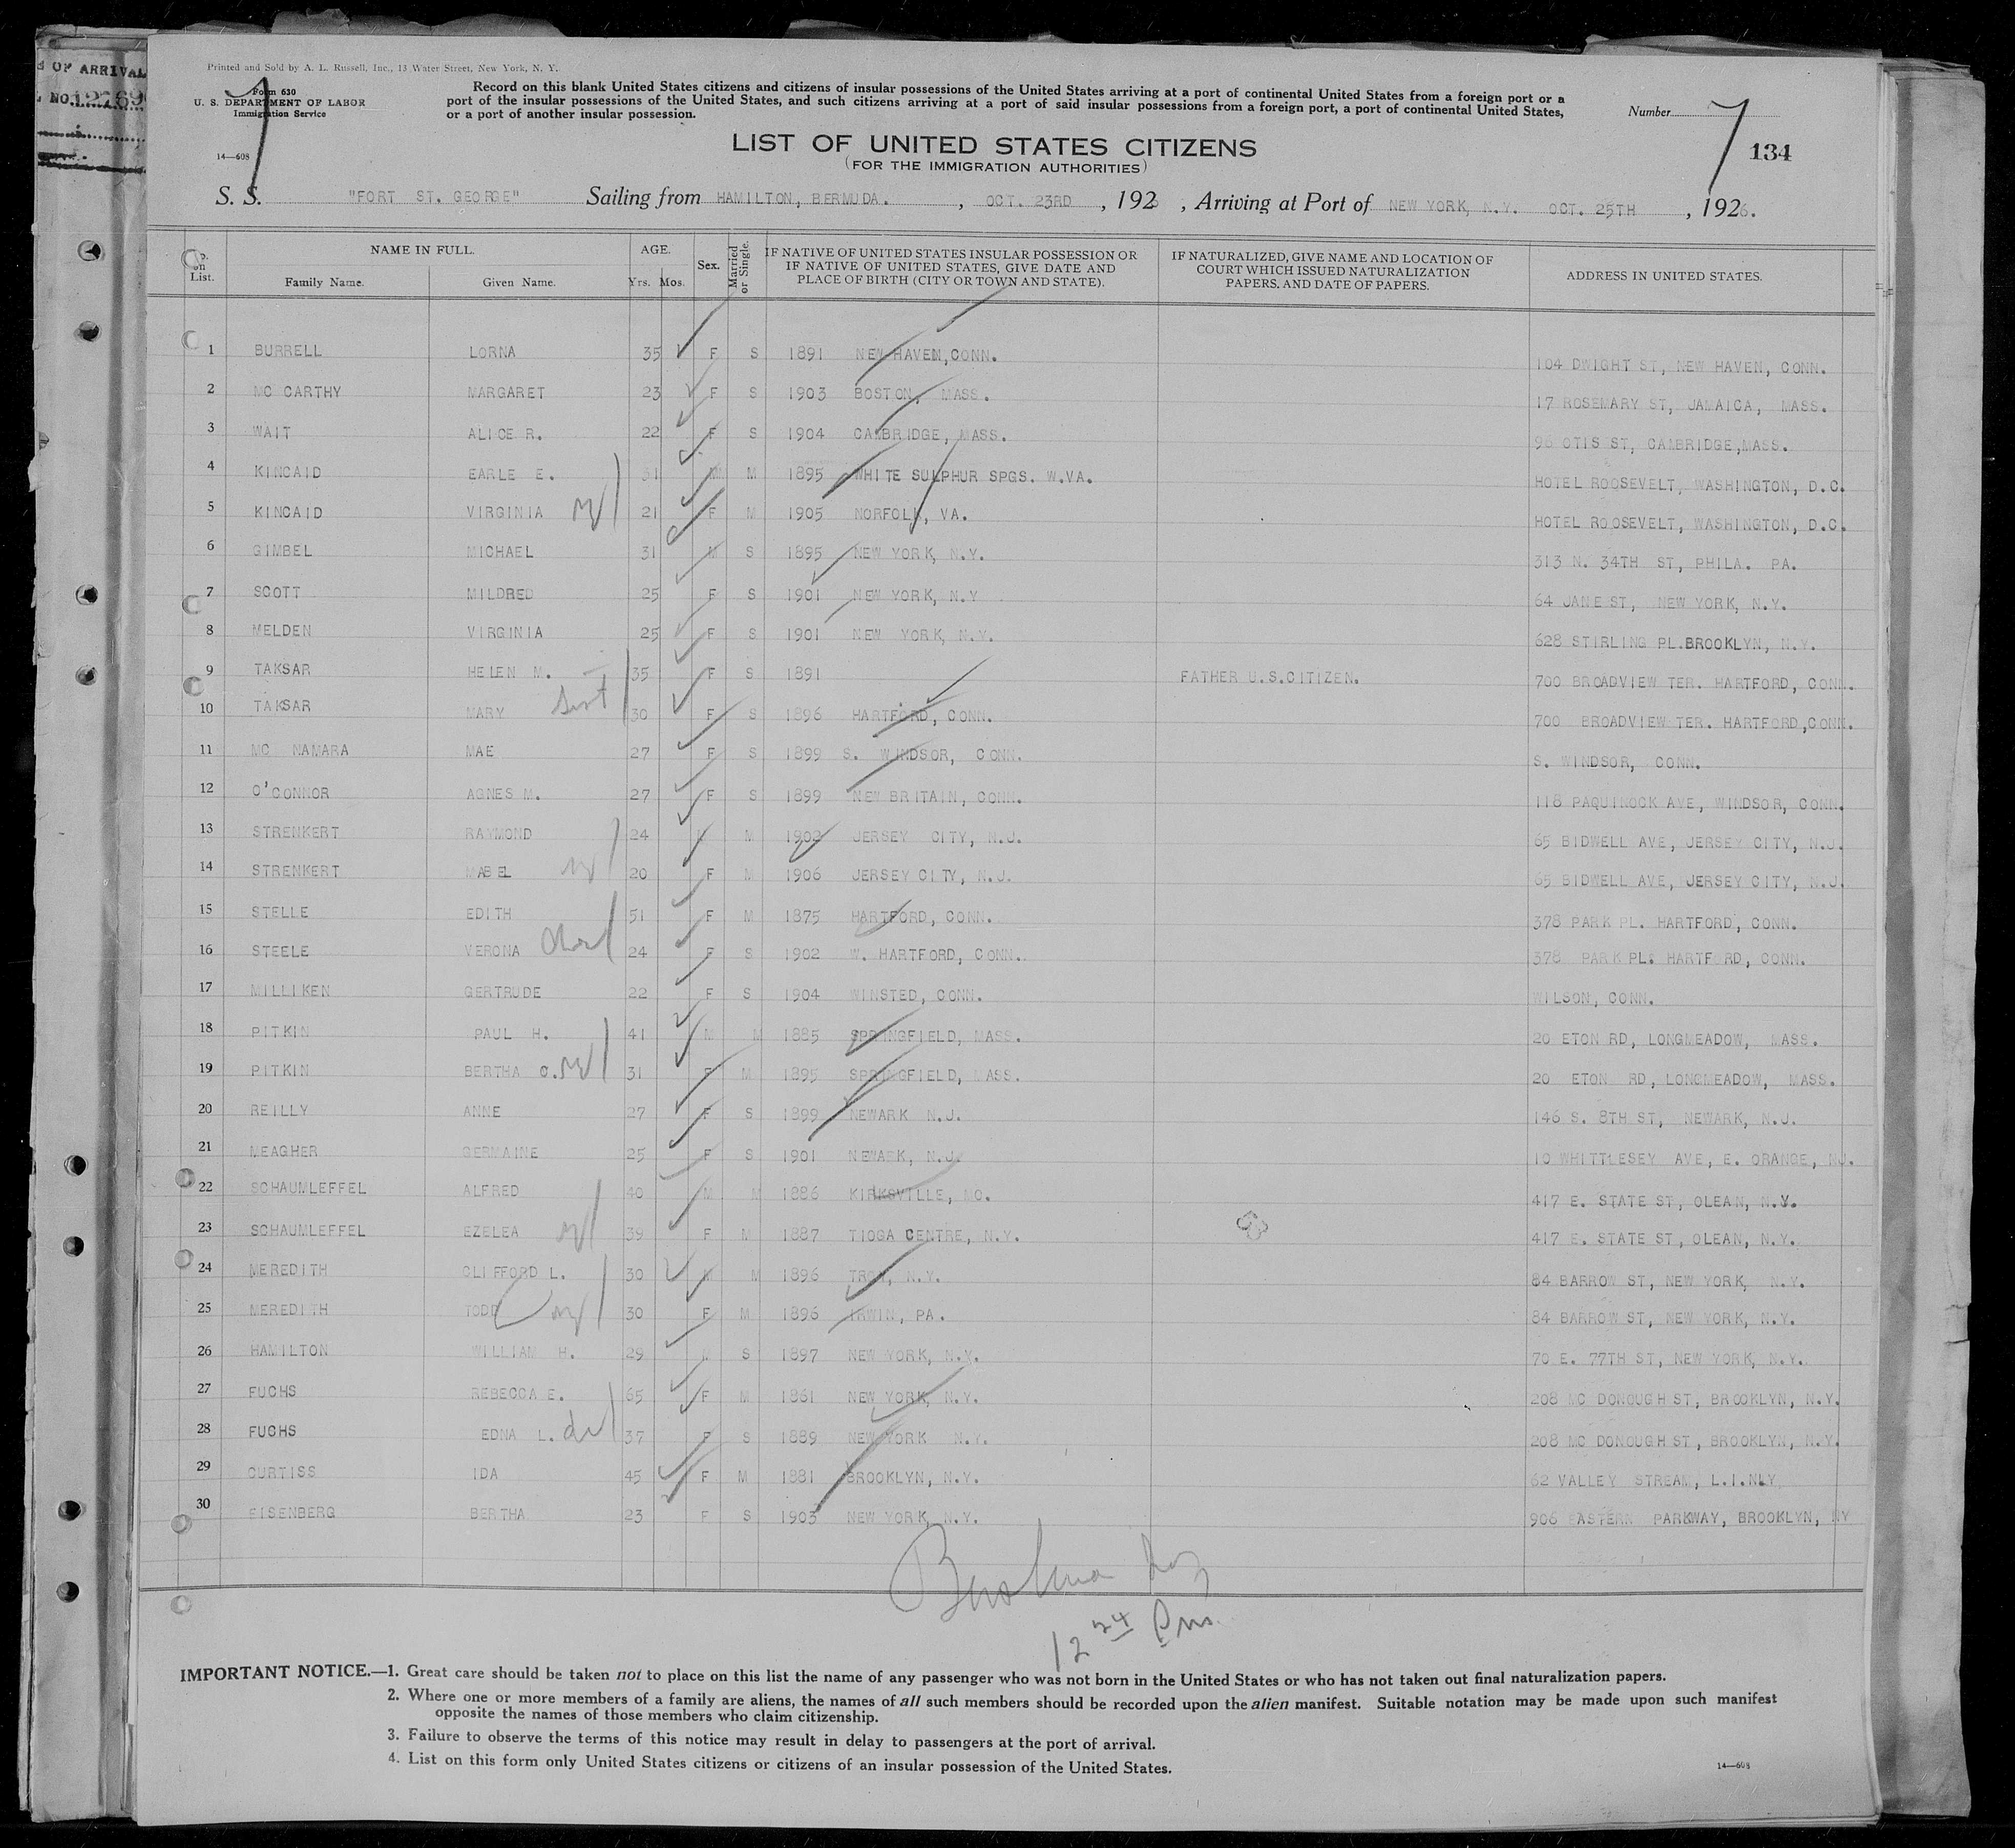 S OF ARRIVAL
NO. 12769
Printed and Sold by A. L. Russell, Inc., 13 Water Street, New York, N. Y.
Form 630
U. S. DEPARTMENT OF LABOR
Immigration Service
14—608
Record on this blank United States citizens and citizens of insular possessions of the United States arriving at a port of continental United States from a foreign port or a
port of the insular possessions of the United States, and such citizens arriving at a port of said insular possessions from a foreign port, a port of continental United States,
or a port of another insular possession.
Number 7
134
LIST OF UNITED STATES CITIZENS
(FOR THE IMMIGRATION AUTHORITIES)
S. S. "FORT ST. GEORGE" Sailing from HAMILTON, BERMUDA. , OCT. 23RD , 1926 , Arriving at Port of NEW YORK, N.Y. OCT. 25TH , 1926.
No. on List. NAME IN FULL. Family Name. Given Name. AGE. Yrs. Mos. Sex. Married or Single. IF NATIVE OF UNITED STATES INSULAR POSSESSION OR IF NATIVE OF UNITED STATES, GIVE DATE AND PLACE OF BIRTH (CITY OR TOWN AND STATE). IF NATURALIZED, GIVE NAME AND LOCATION OF COURT WHICH ISSUED NATURALIZATION PAPERS, AND DATE OF PAPERS. ADDRESS IN UNITED STATES.
1 BURRELL LORNA 35 F S 1891 NEW HAVEN, CONN. 104 DWIGHT ST, NEW HAVEN, CONN.
2 MC CARTHY MARGARET 23 F S 1903 BOSTON, MASS. 17 ROSEMARY ST, JAMAICA, MASS.
3 WAIT ALICE R. 22 F S 1904 CAMBRIDGE, MASS. OTIS ST, CAMBRIDGE, MASS.
4 KINCAID EARLE E. 31 M M 1895 WHITE SULPHUR SPGS. W.VA. HOTEL ROOSEVELT, WASHINGTON, D.C.
5 KINCAID VIRGINIA W 21 F M 1905 NORFOLK, VA. HOTEL ROOSEVELT, WASHINGTON, D.C.
6 GIMBEL MICHAEL 31 M S 1895 NEW YORK, N.Y. 313 N. 34TH ST, PHILA. PA.
7 SCOTT MILDRED 25 F S 1901 NEW YORK, N.Y 64 JANE ST, NEW YORK, N.Y.
8 MELDEN VIRGINIA 25 F S 1901 NEW YORK, N.Y. 628 STIRLING PL. BROOKLYN, N.Y.
9 TAKSAR HELEN M. 35 F S 1891 FATHER U.S.CITIZEN. 700 BROADVIEW TER. HARTFORD, CONN.
10 TAKSAR MARY Sist 30 F S 1896 HARTFORD, CONN. 700 BROADVIEW TER. HARTFORD, CONN.
11 MC NAMARA MAE 27 F S 1899 S. WINDSOR, CONN. S. WINDSOR, CONN.
12 O'CONNOR AGNES M. 27 F S 1899 NEW BRITAIN, CONN. 118 PAQUINOCK AVE, WINDSOR, CONN.
13 STRENKERT RAYMOND 24 M M 1902 JERSEY CITY, N.J. 65 BIDWELL AVE, JERSEY CITY, N.J.
14 STRENKERT MABEL W 20 F M 1906 JERSEY CITY, N.J. 65 BIDWELL AVE, JERSEY CITY, N.J.
15 STELLE EDITH 51 F M 1875 HARTFORD, CONN. 378 PARK PL. HARTFORD, CONN.
16 STEELE VERONA 24 F S 1902 W. HARTFORD, CONN. 378 PARK PL. HARTF RD, CONN.
17 MILLIKEN GERTRUDE 22 F S 1904 WINSTED, CONN. WILSON, CONN.
18 PITKIN PAUL H. 41 M M 1885 SPRINGFIELD, MASS. 20 ETON RD, LONGMEADOW, MASS.
19 PITKIN BERTHA C. W 31 F M 1895 SPRINGFIELD, MASS. 20 ETON RD, LONGMEADOW, MASS.
20 REILLY ANNE 27 F S 1899 NEWARK N.J. 146 S. 8TH ST, NEWARK, N.J.
21 MEAGHER GERMAINE 25 F S 1901 NEWARK, N.J. 10 WHITTLESEY AVE, E. ORANGE, NJ.
22 SCHAUMLEFFEL ALFRED 40 M M 1886 KIRKSVILLE, MO. 417 E. STATE ST, OLEAN, N.Y.
23 SCHAUMLEFFEL EZELEA W 39 F M 1887 TIOGA CENTRE, N.Y. 417 E. STATE ST, OLEAN, N.Y.
24 MEREDITH CLIFFORD L. 30 M M 1896 TROY, N.Y. 84 BARROW ST, NEW YORK, N.Y.
25 MEREDITH TODD W 30 F M 1896 IRWIN, PA. 84 BARROW ST, NEW YORK, N.Y.
26 HAMILTON WILLIAM H. 29 M S 1897 NEW YORK, N.Y. 70 E. 77TH ST, NEW YORK, N.Y.
27 FUCHS REBECCA E. 65 F M 1861 NEW YORK, N.Y. 208 MC DONOUGH ST, BROOKLYN, N.Y.
28 FUCHS EDNA L. da 37 F S 1889 NEW YORK N.Y. 208 MC DONOUGH ST, BROOKLYN, N.Y.
29 CURTISS IDA 45 F M 1881 BROOKLYN, N.Y. 62 VALLEY STREAM, L.I.NLY
30 EISENBERG BERTHA 23 F S 1903 NEW YORK, N.Y. 906 EASTERN PARKWAY, BROOKLYN, NY
12 24 Pm.
IMPORTANT NOTICE.—1. Great care should be taken not to place on this list the name of any passenger who was not born in the United States or who has not taken out final naturalization papers.
2. Where one or more members of a family are aliens, the names of all such members should be recorded upon the alien manifest. Suitable notation may be made upon such manifest
opposite the names of those members who claim citizenship.
3. Failure to observe the terms of this notice may result in delay to passengers at the port of arrival.
4. List on this form only United States citizens or citizens of an insular possession of the United States.
14—608